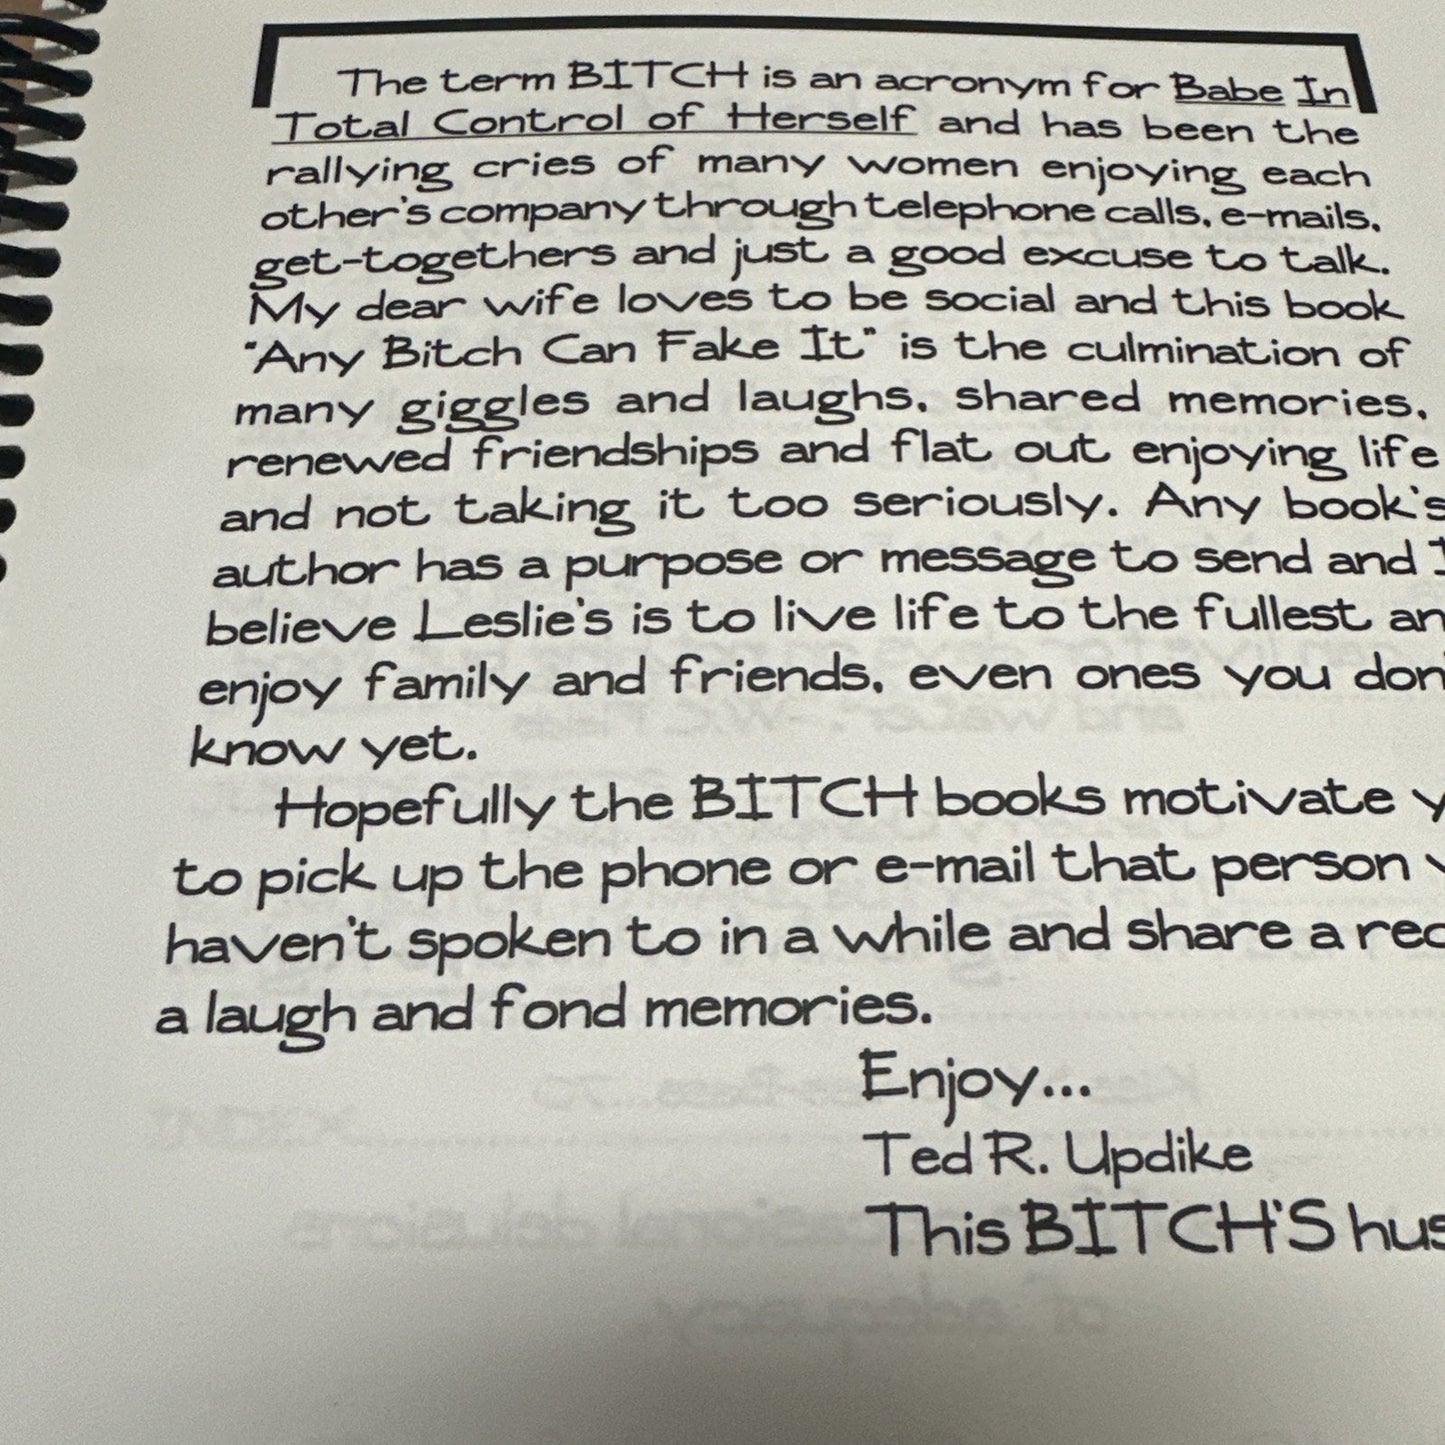 The term BITCH is an acronym for Babe In
Total Control of Herself and has been the
rallying cries of many women enjoying each
other's company through telephone calls, e-mails,
get-togethers and just a good excuse to talk.
My dear wife loves to be social and this book
"Any Bitch Can Fake It" is the culmination of
many giggles and laughs, shared memories,
renewed friendships and flat out enjoying life
and not taking it too seriously. Any book's
author has a purpose or message to send and I
believe Leslie's is to live life to the fullest
enjoy family and friends, even ones you
know yet.
Hopefully the BITCH books motivate
to pick up the phone or e-mail that person
haven't spoken to in a while and share a
a laugh and fond memories.
Enjoy...
Ted R. Updike
This BITCH'S